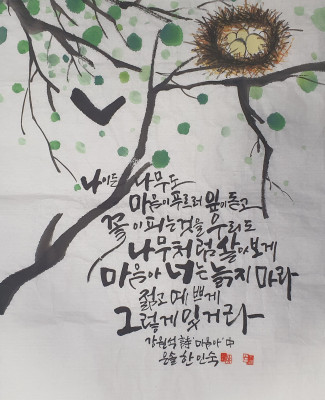 나이든 나무도
마음이 푸르러 잎이 돋고
꽃이 피는 것을 우리도
나무처럼 살아보게
마음아 너는 늙지 마라
젊고 예쁘게
그렇게 있거라
강원석 詩 '마음아' 中
온솔 한인숙